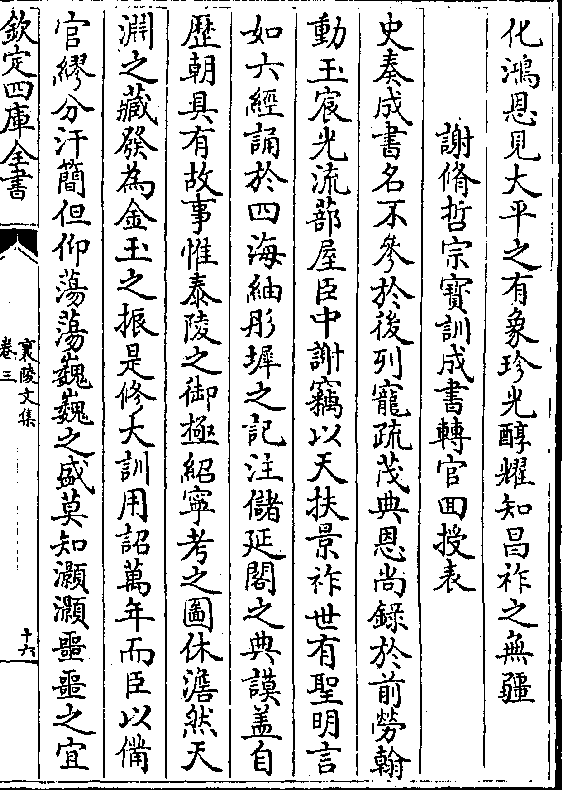 化鴻恩見大平之有象珍光醇耀知昌祚之無疆
謝脩哲宗寶訓成書轉官囬授表
史奏成書名不參於後列寵疏茂典恩尚錄於前勞翰
動玉宸光流蔀屋臣中謝竊以天扶景祚世有聖明言
如六經誦於四海紬彤墀之記注儲延閣之典謨盖自
歴朝具有故事惟泰陵之御極紹寧考之圖休澹然天
淵之藏發為金玉之振是修大訓用詔萬年而臣以備
官繆分汗簡但仰蕩蕩巍巍之盛莫知灝灝噩噩之宜
欽定四庫全書
襄陵文集
卷三
十六